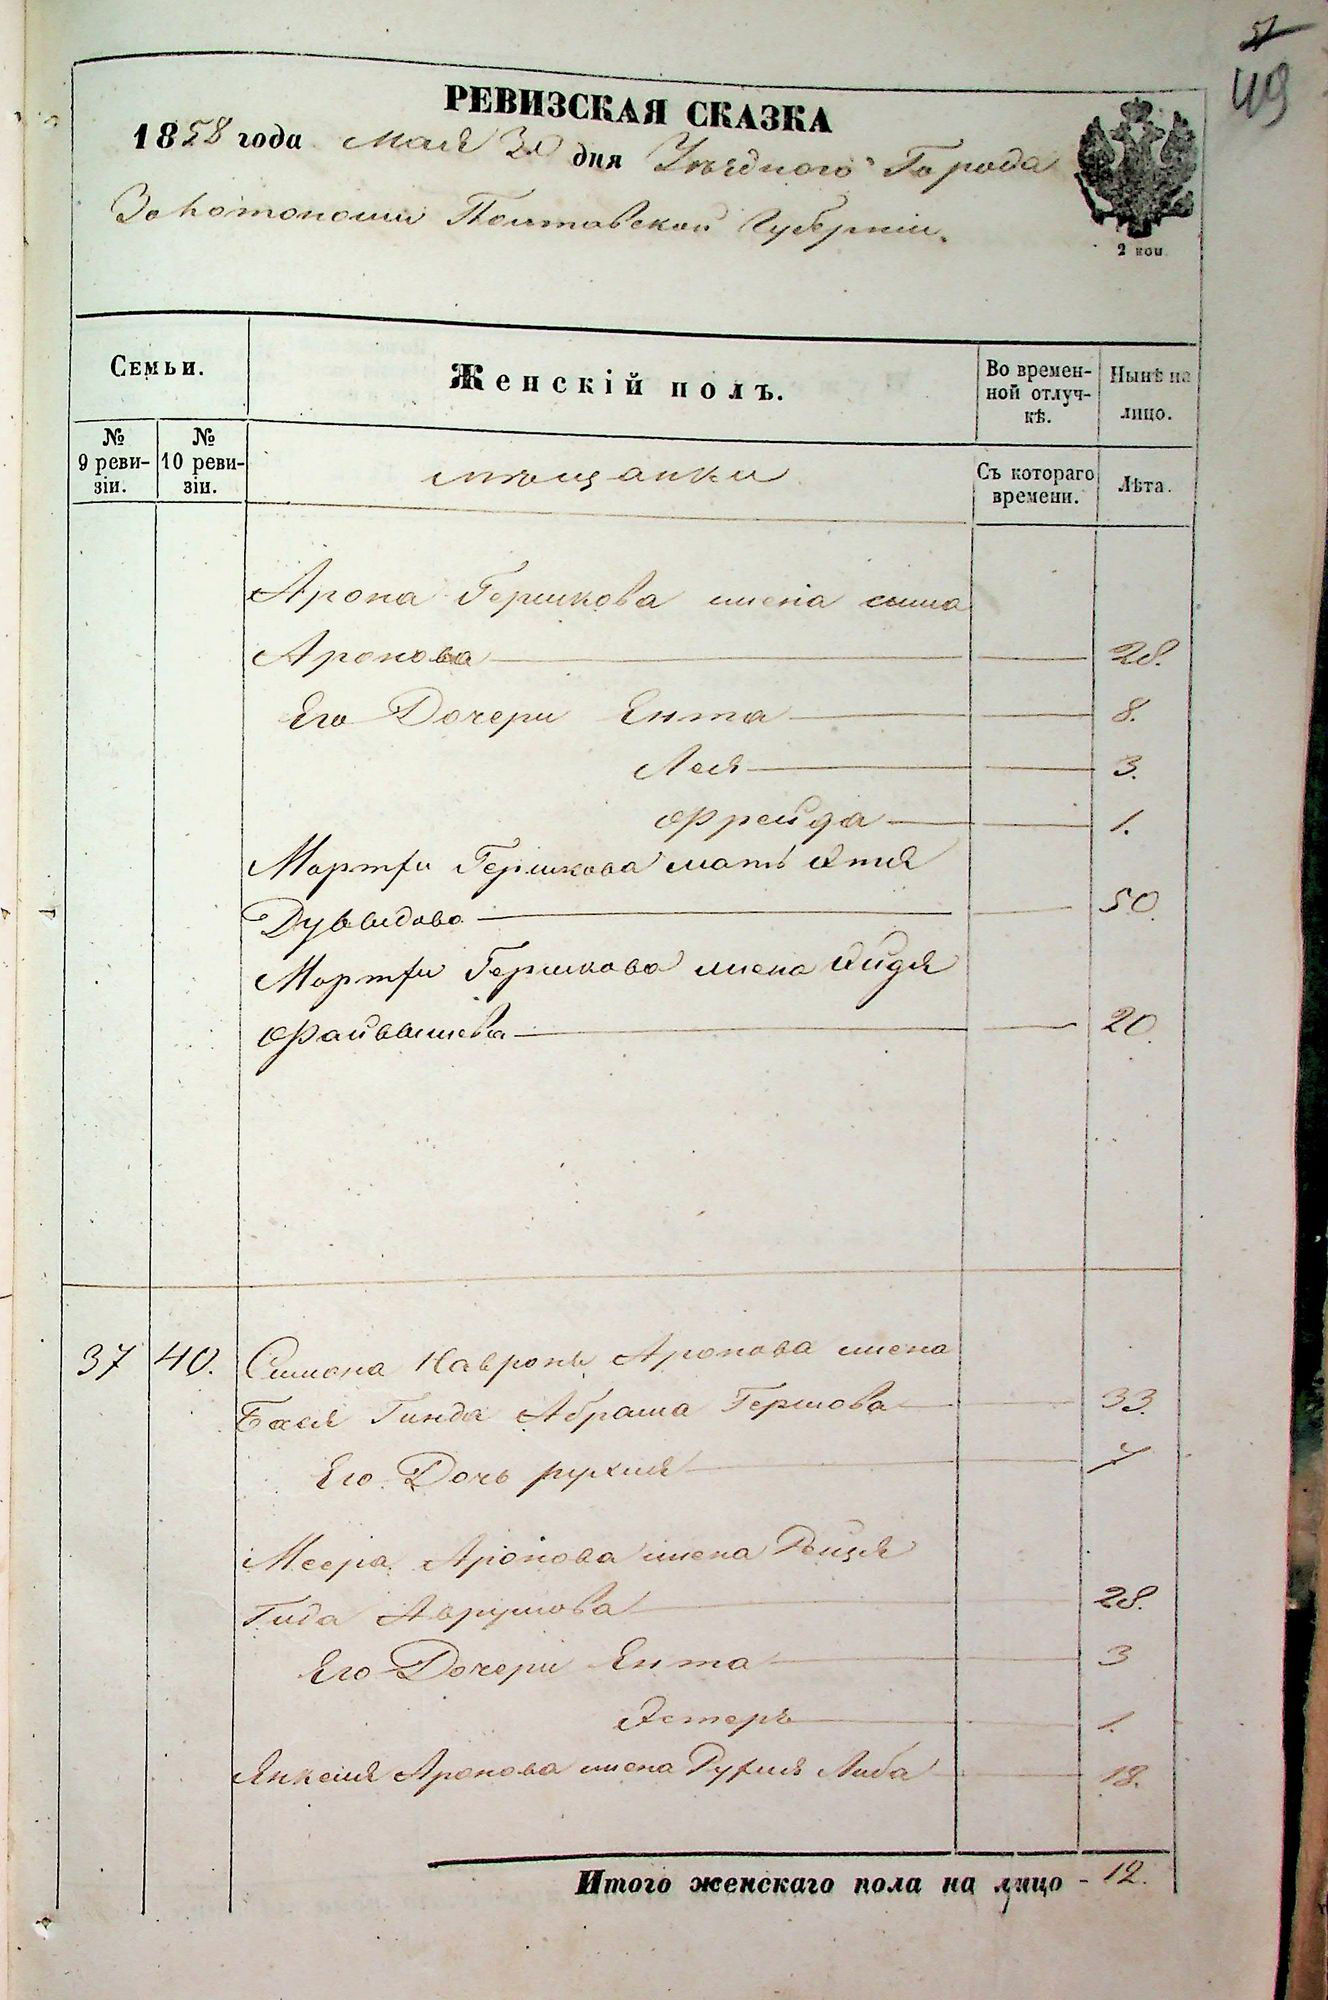 49
РЕВИЗСКАЯ СКАЗКА
1858 года Мая 30 дня Уѣзднаго Города
Золотоноши Полтавской Губерніи.
2 коп.
Семьи.
Женскій полъ.
Во времен-
ной отлуч-
кѣ.
Нынѣ на
лицо.
№
9 реви-
зіи.
№
10 реви-
зіи.
мѣщанки
Съ котораго
времени.
Лѣта.
Арона Гершкова жена
Аронова 28.
Его Дочери Ента 8.
Лея 3.
Фрейда 1.
Гершкова мать Этя
Дувыдова 50.
Гершкова жена Эйдя
Файвышева 20.
37 40. Симона Аронова жена
Бася Гинда Абрама Гершова 33.
Его Дочь рухля 7
Меера Аронова жена
Гида Аврумова 28.
Его Дочери Ента 3
Эстеръ 1.
Янкеля Аронова жена Рухля Либа 18.
Итого женскаго пола на лицо - 12.